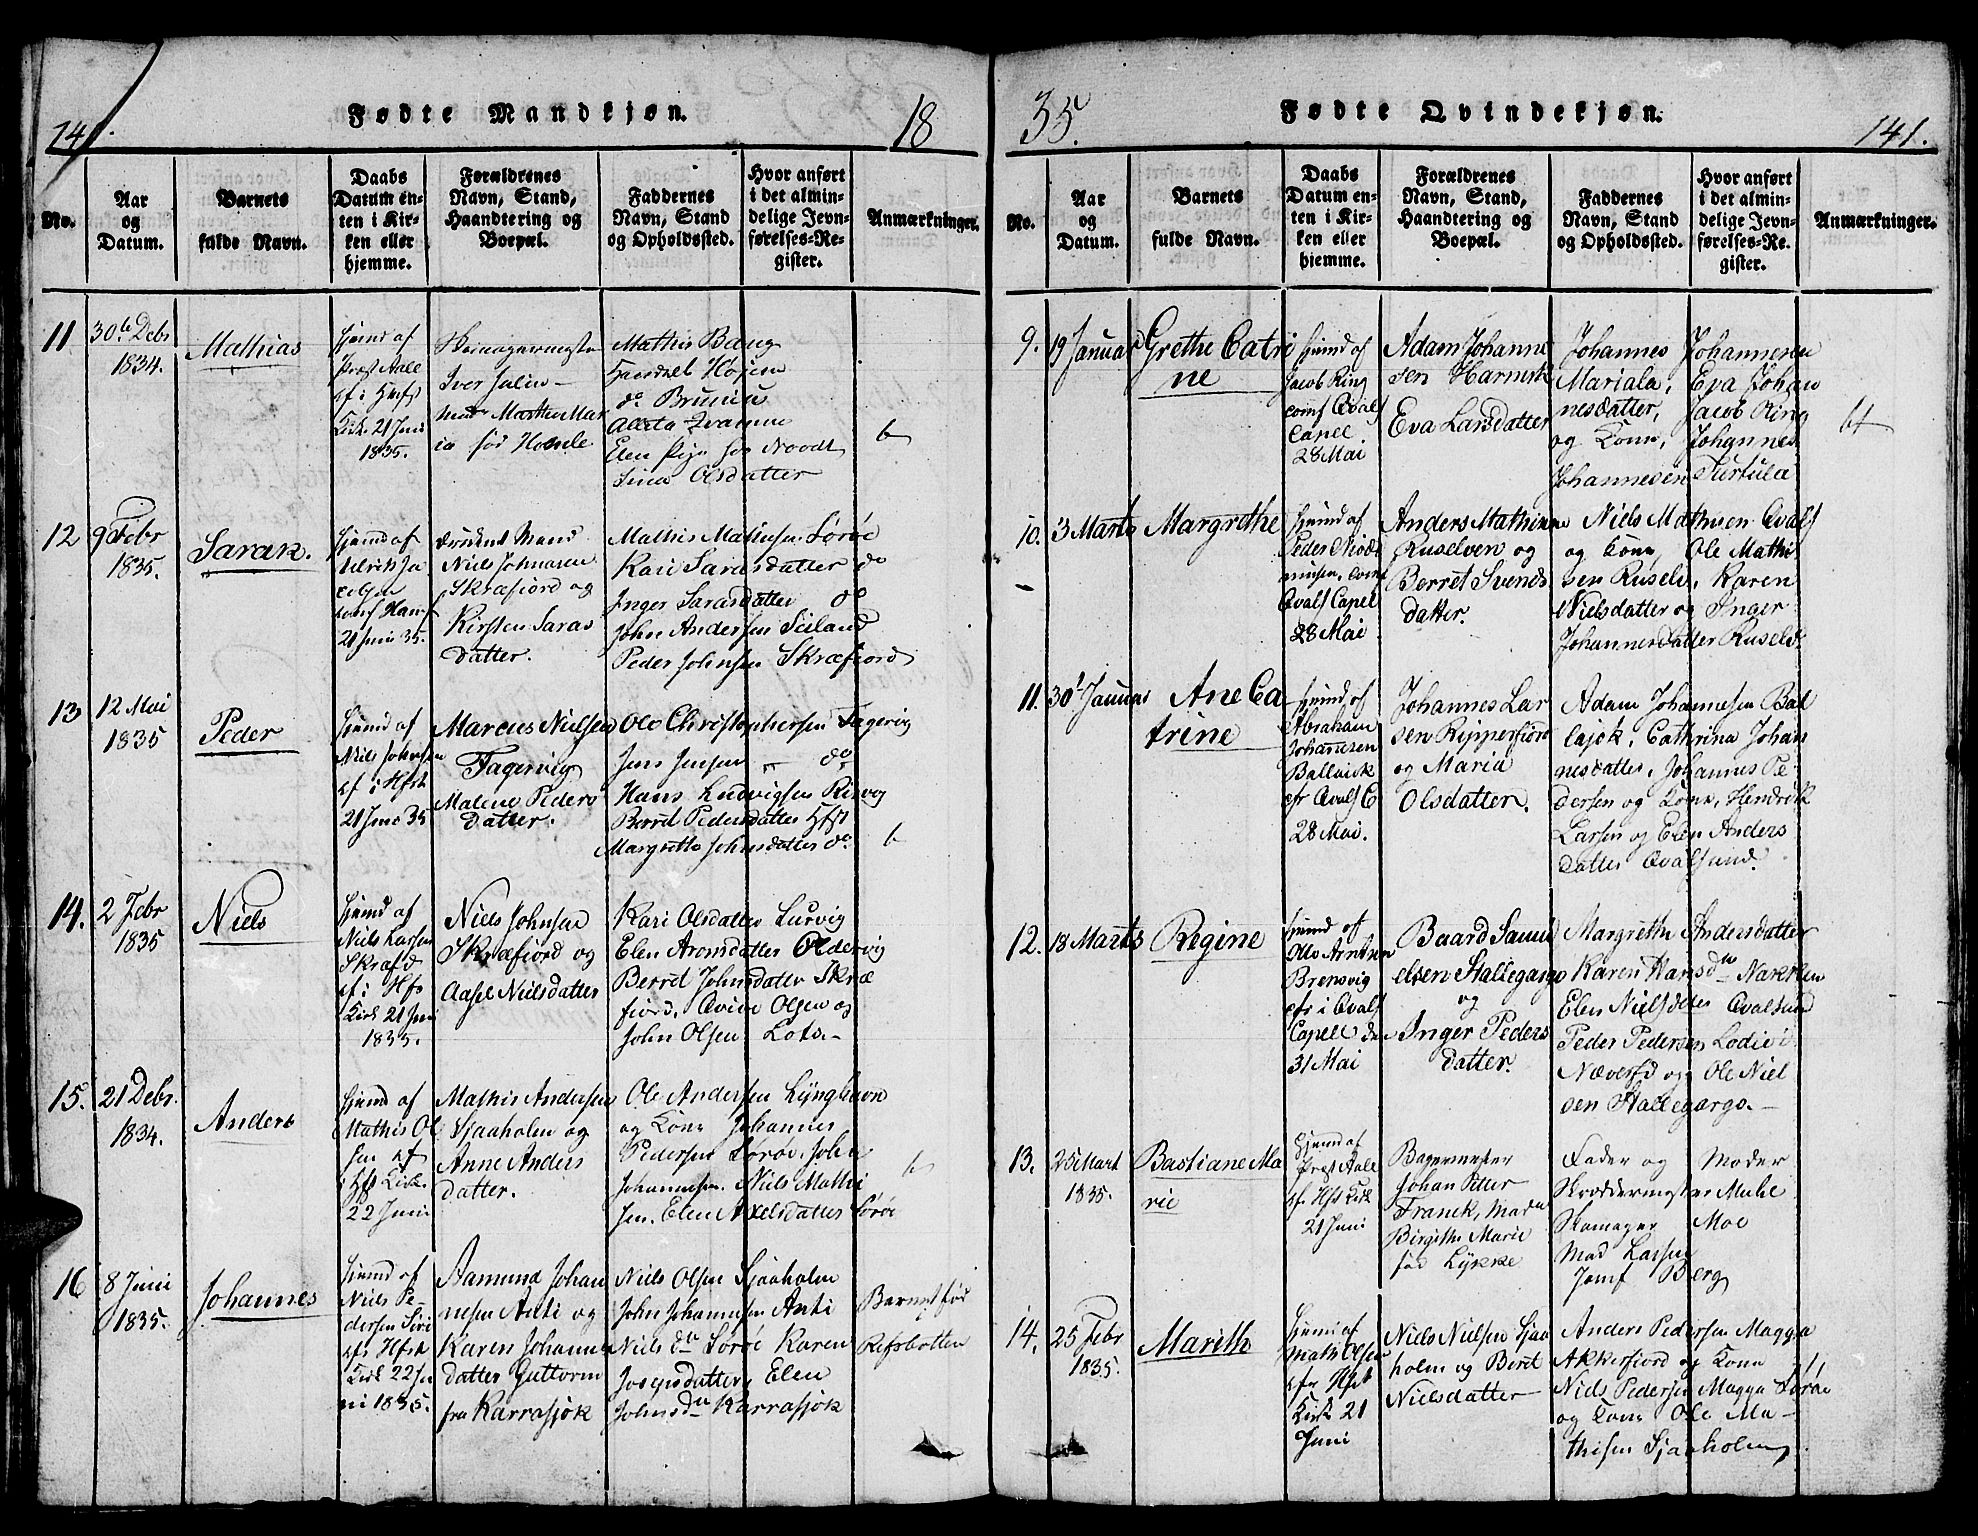 141.
Fødte Mandkjøn.
18
No.
Aar og Datum.
Barnets fulde Navn.
Daabs Datum enten i Kirken eller hjemme.
Forældrenes Navn, Stand, Haandtering og Boepæl.
Faddernes Navn, Stand og Opholdssted.
Hvor anført i det almindelige Jevnførelses-Register.
Anmærkninger.
11
30te Debr
1834.
Mathias
hjemd af
Prest Aall
cf i Hmfst
Kirk. 21 Juni
1835.
Iver
ia fød
Mathis Bang
Hansdatt Højem
do Bruun
Elen Pige hos Noodt
Olsdatter
b
12
9 Febr
1835.
Sarak.
hjemd af
Ulrich Ja
21 Juni 35.
Mand
Niels Johnsen
Skræfiord og
Kirsten Saras
datter.
Mathis Mathisen Sørøe
Kari Sarasdatter do
Inger Sarasdatter do
John Andersen Seiland
Peder Johnsen Skræfiord
13
12 Mai
1835
Peder
hjemd af
Niels Johnsen
cf i Hfst
21 Juni 35
Marcus Nielsen
Fagervig
Malene Peders
datter.
Ole Christophersen Fagervig
Jens Jensen " — do
Hans Ludvigsen Risvog
Berret Pedersdatter Hfst
Margrethe Johnsdatter do.
b
14.
2 Febr
1835
Niels
hjemd af
Niels Larsen
Skrafd
cf i Hfs
Kirk 21 Juni
1835.
Niels Johnsen
Skræfiord og
Aasel Nielsdatter
Kari Olsdatter Lurvig
Elen Aronsdatter Oldervig
Berret Johnsdatter Skræ
fiord, Qvive Olsen og
John Olsen Lots.-
15.
21 Debr.
1834.
Anders
hjemd af
Mathis Ol
sen cf
Hfs Kirk.
22 Juni
Mathis Andersen
Sjaaholm og
Anne Anders
datter.
Ole Andersen Lynghavn
og Kone Johannes
Pedersen Sørøe, John
Johannesen. Niels Mathi
sen. Elen Axelsdatter Sørøe
b
16
8 Juni
1835.
Johannes
hjemd af
Niels Pe-
dersen Siri
cfr Hfst
Kirk 22 Ju
ni 1835.
Aamund Johan
nesen Anti og
Karen Johannes
datter Guttorm
fra Karrasjok
Niels Olsen Sjaaholm
John Johannesen Anti
Niels do Sørøe Karen
Josepsdatter, Elen
Johnsdtr Karrasjok
Barnet fød
Refsbotten
35.
Fødte Qvindekjøn.
141.
No.
Aar og Datum.
Barnets fulde Navn.
Daabs Datum enten i Kirken eller hjemme.
Forældrenes Navn, Stand, Haandtering og Boepæl.
Faddernes Navn, Stand og Opholdssted.
Hvor anført i det almindelige Jevnførelses-Register.
Anmærkninger.
9.
19 Januar
Grethe Catri
ne
hjemd af
Jacob Ring
comf Qvals
Capel.
28 Mai
Adam Johanne
sen Harmsk
Eva Larsdatter
Johannes Johannesen
Mariala, Eva Johan
nesdatter, Jacob Ring
og Kone, Johannes
Johannesen Turtula
bt
10.
3 Marts
Margrethe
hjemd af
Peder Nicode
musen, comf
Qvals Capel
28 Mai
Anders Mathisen
Ruselven og
Berret Svends
datter.
Niels Mathisen Qvals
og Kone, Ole Mathi
sen Ruselv, Karen
Nielsdatter og Inger
Johannesdatter Ruselv.
11.
30t Januar
Ane Ca
trine
hjemd af
Abraham
Johannesen
Ballaick
cfr Qvals C
28 Mai.
Johannes Lar
sen Ripperfiord
og Maria
Olsdatter.
Adam Johannesen Bal
lajok, Cathrina Johan
nesdatter, Johannes Pe-
dersen og Kone, Hendrik
Larsen og Elen Anders
datter Qvalsund.
12.
18 Marts
Regine
hjemd af
Ole Arntsen
Brensvig
cfr i Qvals
Capell den
31 Mai
Baard Samu
elsen Stallegargo
og
Inger Peders
datter.
Margrethe Andersdatter
Karen Hansdtr Nakken
Elen Nielsdtter Qvalsund
Peder Pedersen Lodie i
Næverfd og Ole Niel
sen Stallegargo.-
13.
25 Mart
1835.
Bastiane Ma
rie
hjemd af
Prest Aall
cf. Hfs Kirk
21 Juni
Bagermester
Johan Petter
Franck, Mada
Birgithe Marie
fød Lykke
Fader og Moder
Skreddermester Muhl
Skomager Moe
Mad Larsen
Jomf Berg
14.
25 Febr
1835.
Marith
hjemd af
Math Olsen
cfr Hfst
Kirk 21
Juni
Niels Nielsen Sjaa
holm og Beret
Nielsdatter
Anders Pedersen Magga
Akkerfiord og Kone
Niels Pedersen Magga Sørøe
og Kone Ole Ma-
thisen Sjaaholm
bt